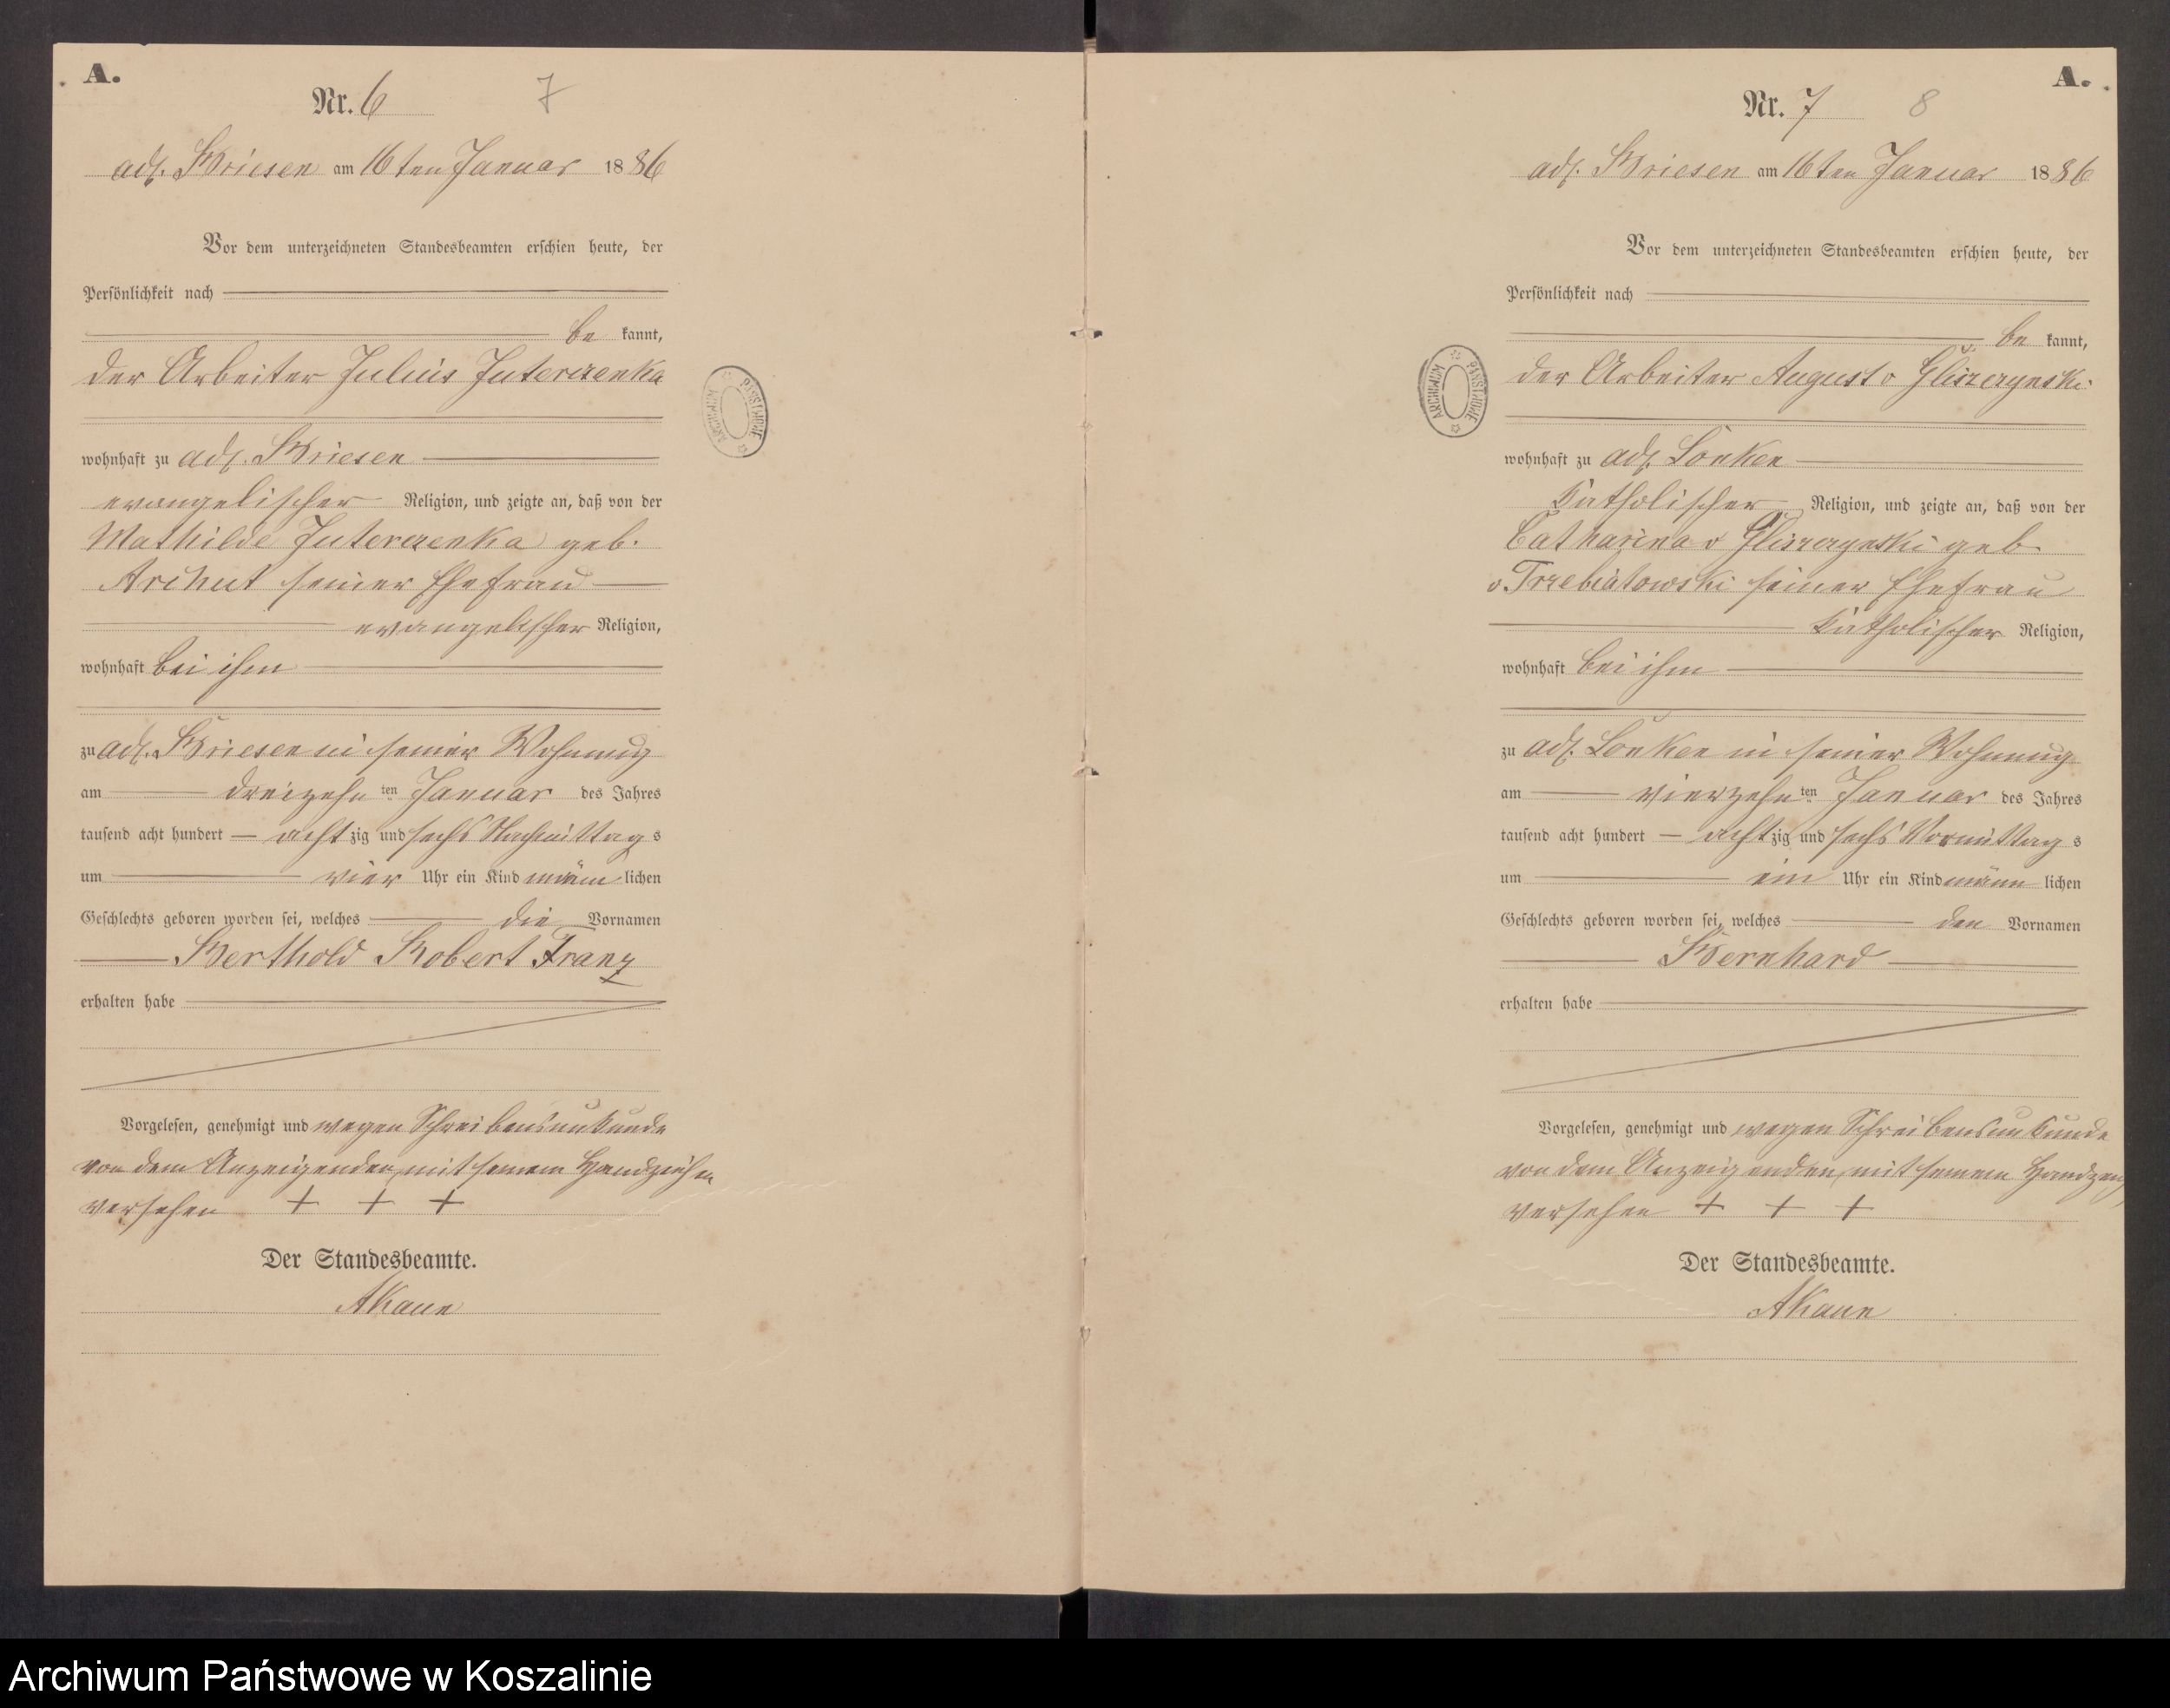 A.
Nr. 6 7
adl. Briesen am 16ten Januar 1886
Vor dem unterzeichneten Standesbeamten erschien heute, der
Persönlichkeit nach
be kannt,
der Arbeiter Julius Juterzenka
wohnhaft zu adl. Briesen
evangelischer Religion, und zeigte an, daß von der
Mathilde Juterzenka geb.
Archut seiner Ehefrau
evangelischer Religion,
wohnhaft bei ihm
zu adl. Briesen in seiner Wohnung
am dreizehn ten Januar des Jahres
tausend acht hundert acht zig und sechs Nachmittag s
um vier Uhr ein Kind männ lichen
Geschlechts geboren worden sei, welches die Vornamen
Berthold Robert Franz
erhalten habe
Vorgelesen, genehmigt und wegen Schreibensunkunde
von dem Anzeigenden mit seinem Handzeichen
versehen + + +
Der Standesbeamte.
AKaun
ARCHIWUM PAŃSTWOWE
A.
Nr. 7 8
adl. Briesen am 16ten Januar 1886
Vor dem unterzeichneten Standesbeamten erschien heute, der
Persönlichkeit nach
be kannt,
der Arbeiter August v
wohnhaft zu adl. Lonken
katholischer Religion, und zeigte an, daß von der
Catharina v geb
v. Trzebiatowski seiner Ehefrau
katholischer Religion,
wohnhaft bei ihm
zu adl. Lonken in seiner Wohnung
am vierzehn ten Januar des Jahres
tausend acht hundert acht zig und sechs Vormittag s
um ein Uhr ein Kind männ lichen
Geschlechts geboren worden sei, welches den Vornamen
Bernhard
erhalten habe
Vorgelesen, genehmigt und wegen Schreibensunkunde
von dem Anzeigenden mit seinem
versehen + + +
Der Standesbeamte.
AKaun
ARCHIWUM PAŃSTWOWE
Archiwum Państwowe w Koszalinie